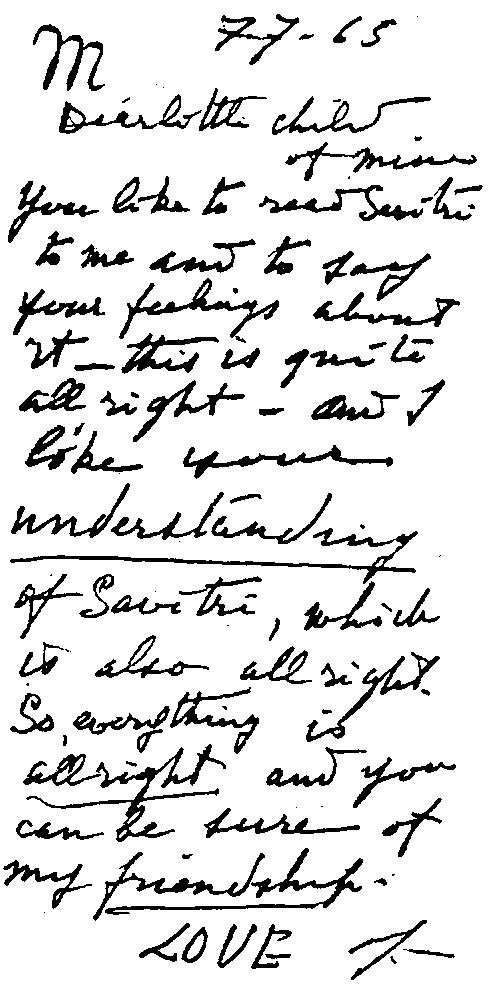 7-7-65
M
Dear little child
of mine
You like to read Savitri
to me and to say
your feelings about
it - this is quite
all right - and I
like your
understanding
of Savitri, which
is also all right.
So, everything is
all right and you
can be sure of
my friendship.
LOVE